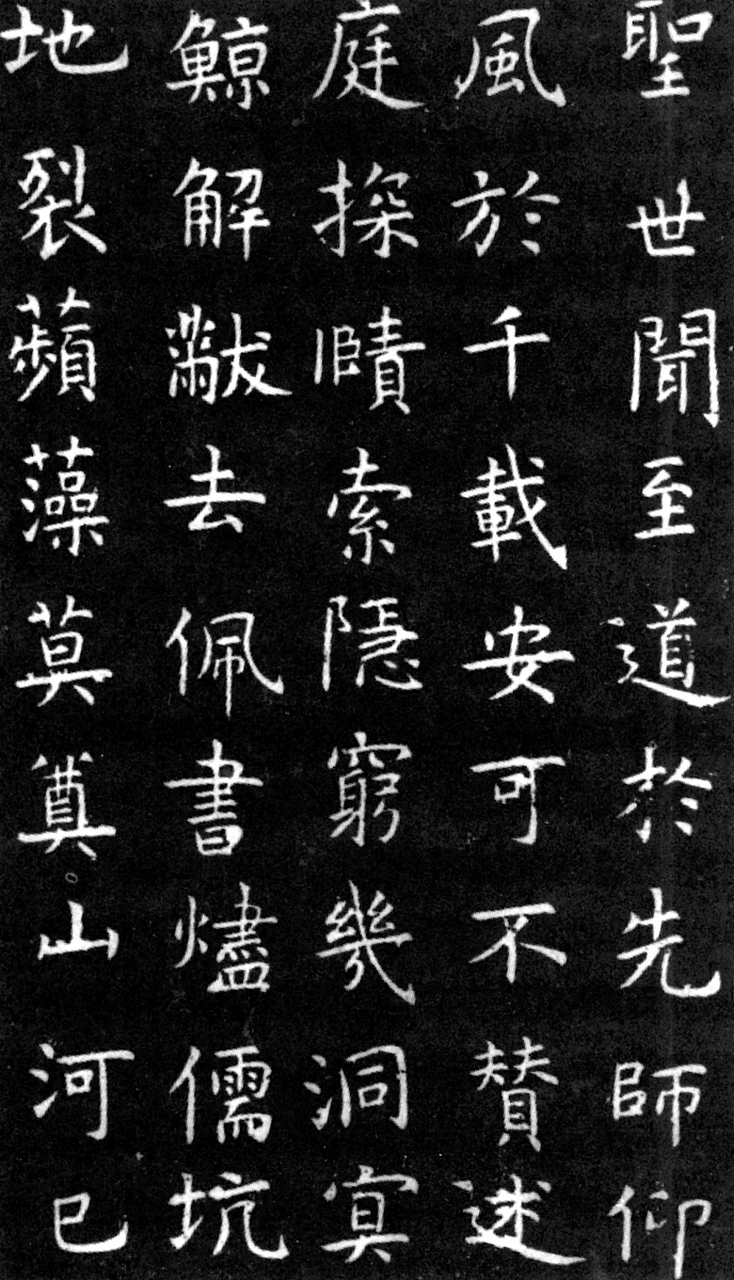 聖世聞至道於先師仰
風於千載安可不賛述
庭探賾索隱窮幾洞冥
鯨解黻去佩書燼儒坑
地裂蘋藻莫奠山河已